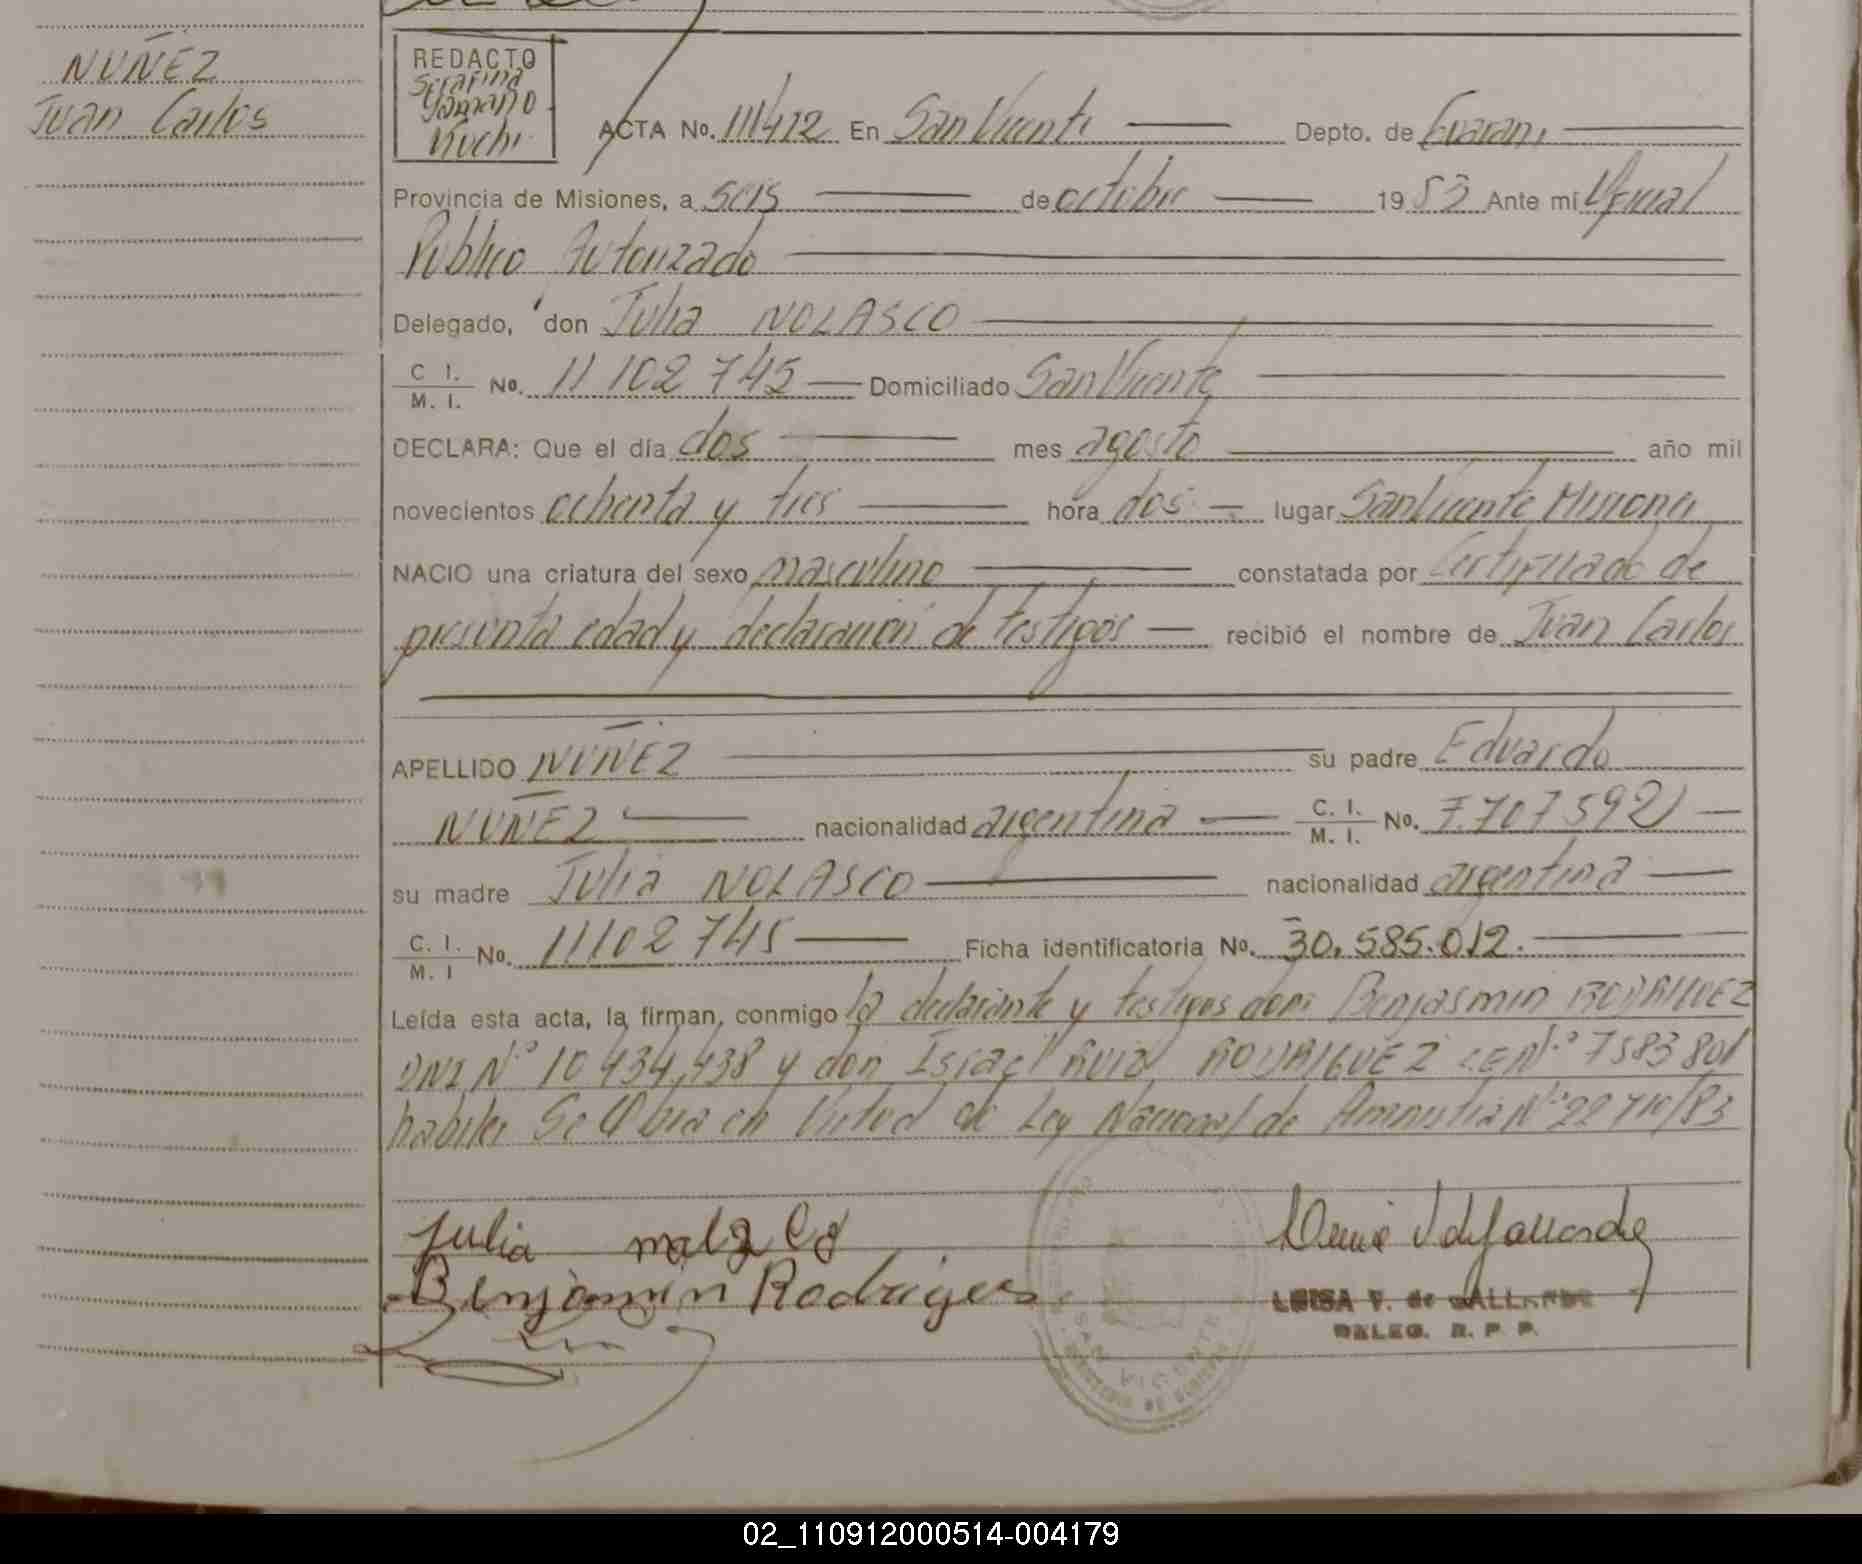 NUÑEZ
Juan Carlos
REDACTO
Serafina
Yamano
Kuchi
ACTA No. III/412 En San Vicente Depto. de Guarani
Provincia de Misiones, a seis de octubre 1983 Ante mi Oficial
Publico Autorizado
Delegado, don Julia NOLASCO
C I. / M. I. No. 11 102 745 Domiciliado San Vicente
DECLARA: Que el día dos mes agosto año mil
novecientos ochenta y tres hora dos lugar San Vicente Misiones
NACIO una criatura del sexo masculino constatada por Certificado de
presunta edad y declaracion de testigos recibió el nombre de Juan Carlos
APELLIDO NUÑEZ su padre Eduardo
NUÑEZ nacionalidad argentina C. I. / M. I. No. 7.707592
su madre Julia NOLASCO nacionalidad argentina
C. I. / M. I No. 11102745 Ficha identificatoria No. 30.585.012.
Leída esta acta, la firman, conmigo la declarante y testigos don Benjasmin RODRIGUEZ
DNI Nº 10 434,438 y don Israel RODRIGUEZ Nº 7583801
habiles Se labra en Virtud de Ley Nacional de Amnistia Nº 22710/83
Julia
Benjamin Rodriges
LUISA V. de GALLARDO
DELEG. R. P. P.
SAN VICENTE
02_110912000514-004179